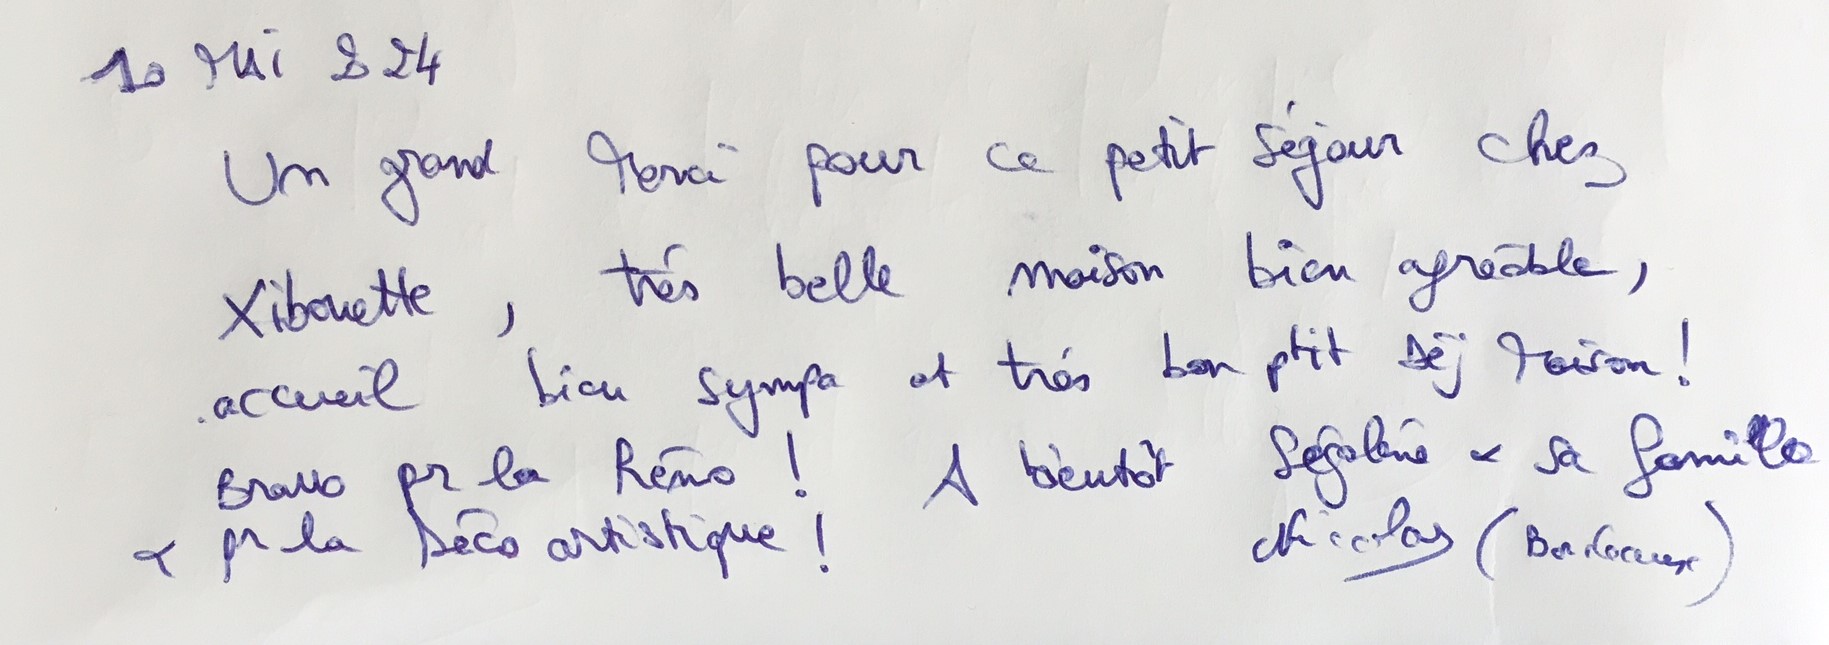 10 Mai 2024
Un grand Merci pour ce petit séjour chez
Xibouette, très belle maison bien agréable,
accueil bien sympa et très bon ptit Déj Maison!
Bravo pr la Réno! A bientôt Ségolène & sa famille
& pr la Déco artistique! Nicolas (Bordeaux)